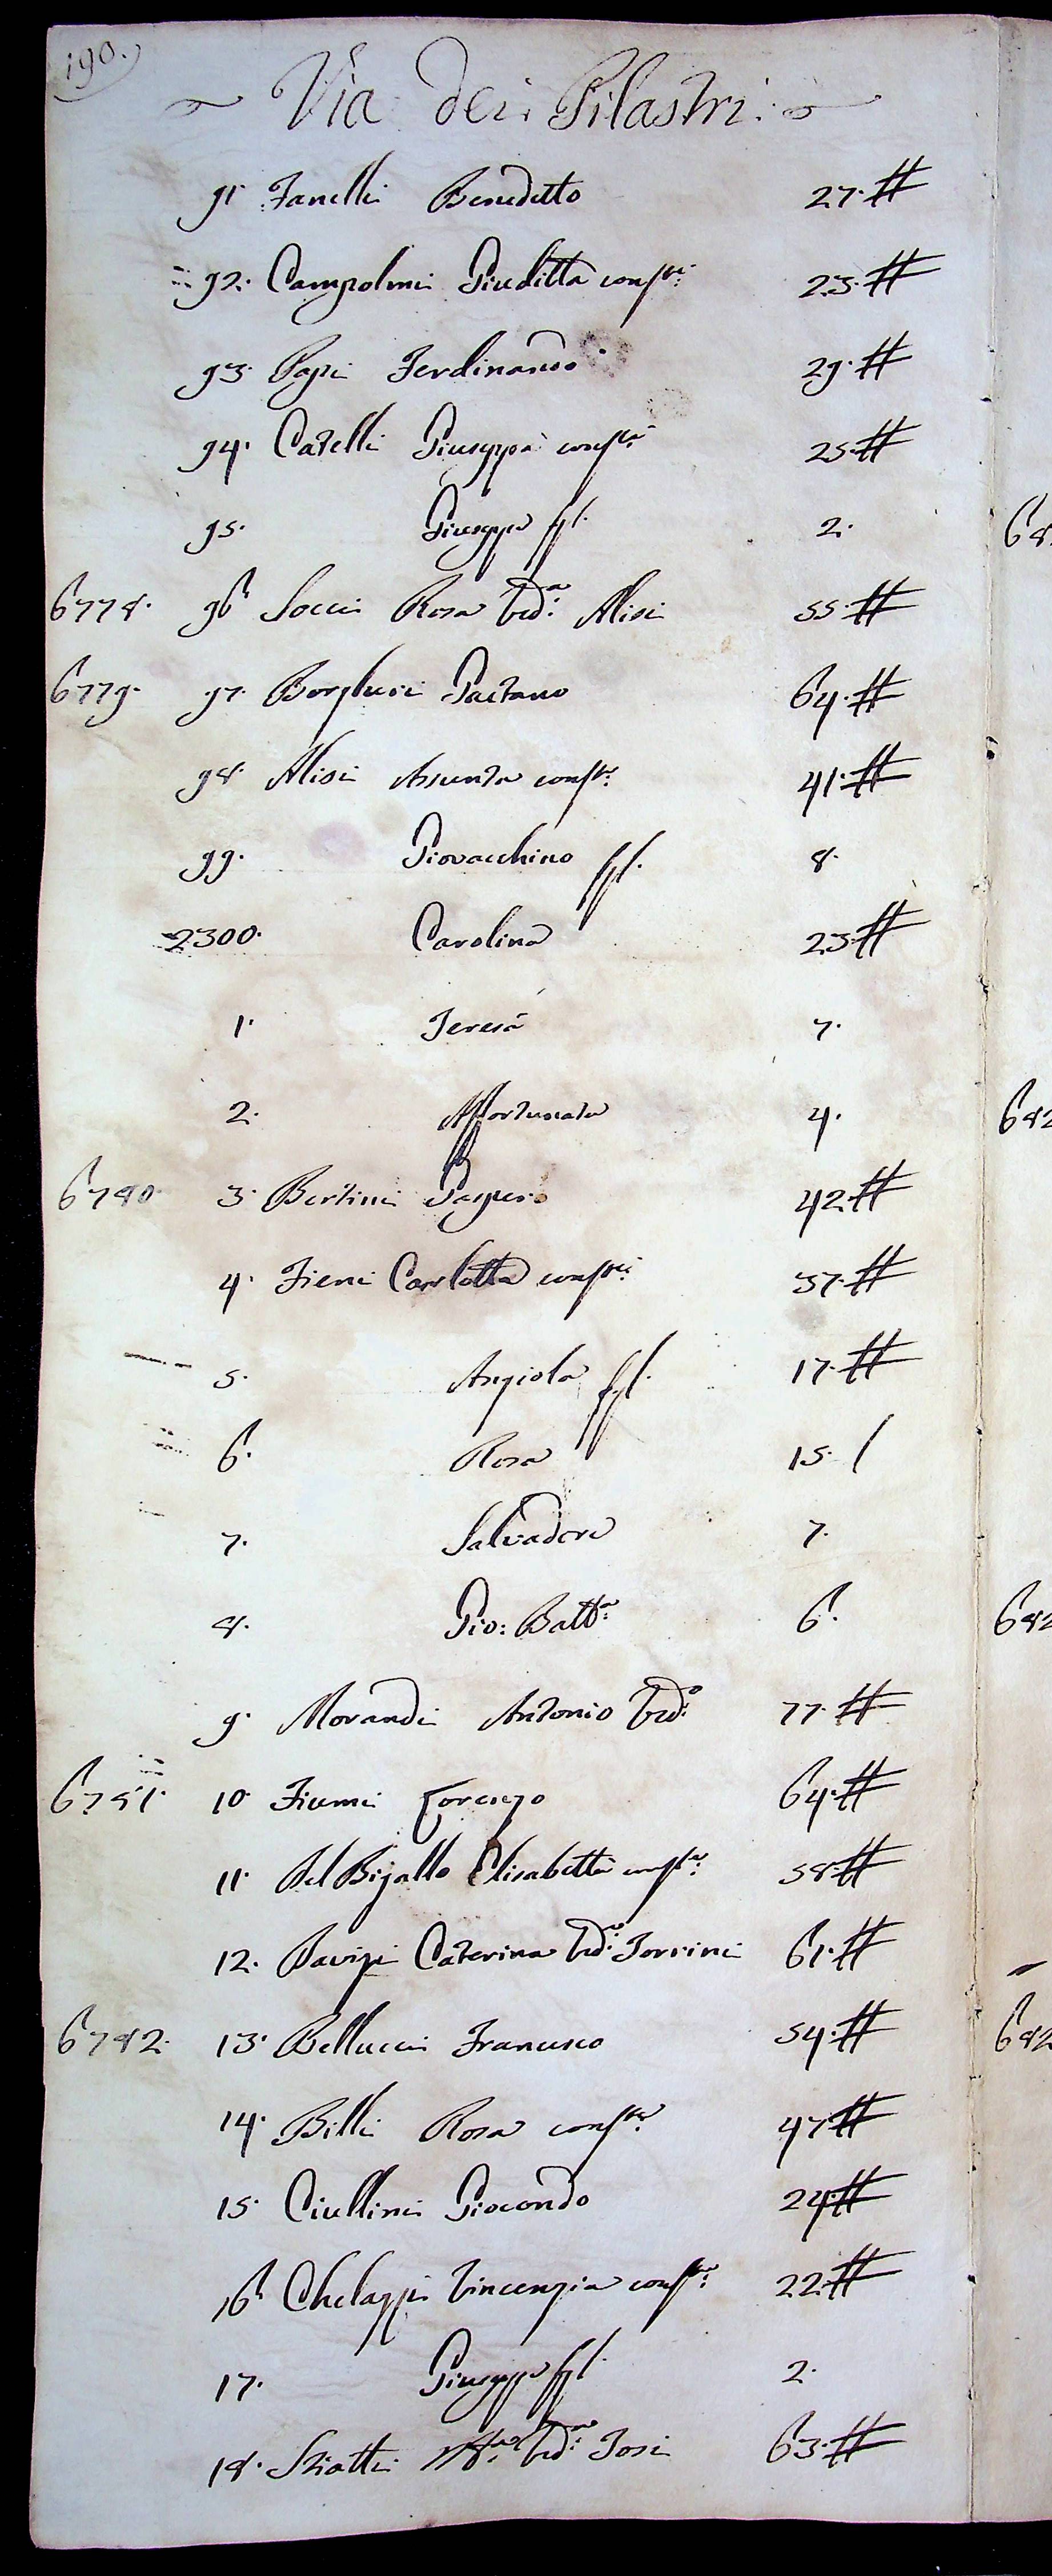 190.
Via dei Pilastri.
91. Fanelli Benedetto 27. #
92. Campolmi Giuditta conste: 23. #
93. Papi Ferdinando 29. #
94. Catelli Giuseppa conste 25. #
95. Giuseppe fgl. 2.
6778. 96. Socci Rosa Vda: Alisi 55. #
6779. 97. Borghesi Gaetano 64. #
98. Alisi Assunta conste: 41. #
99. Giovacchino fgl. 8.
2300. Carolina 23. #
1. Teresa 7.
2. Affortunata 4.
6780. 3. Bertini Gaspero 42. #
4. Fieni Carlotta conste: 37. #
5. Angiola fgl. 17. #
6. Rosa 15. /
7. Salvadore 7.
8. Gio: Battа: 6.
9. Morandi Antonio Vdo: 77. #
6781. 10. Fiumi Lorenzo 64. #
11. Del Bigallo Elisabetta conste: 58. #
12. Caterina Vda: Torrini 61. #
6782. 13. Bellucci Francesco 54. #
14. Billi Rosa conste: 47. #
15. Ciullini Giocondo 24. #
16. Chelazzi Vincenzia conste: 22. #
17. Giuseppe fgl. 2.
18. Sciatti Ma: Vda: Tosi 63. #